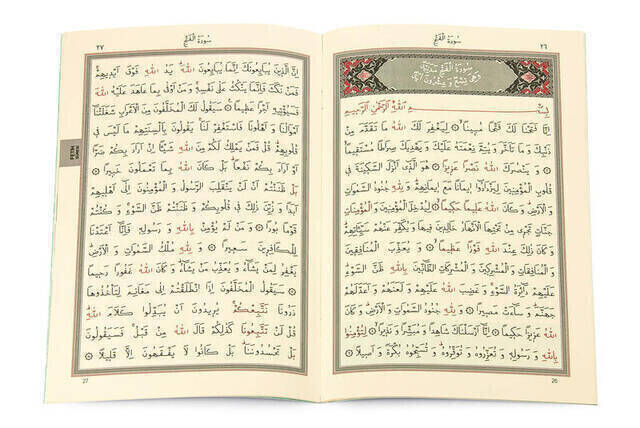 ٢٦
سُورَةُ الْفَتْحِ
سُورَةُ الْفَتْحِ مَدَنِيَّةٌ
وَهِيَ تِسْعٌ وَعِشْرُونَ آيَةً
بِسْمِ اللّٰهِ الرَّحْمٰنِ الرَّحِيمِ
اِنَّا فَتَحْنَا لَكَ فَتْحًا مُبِينًا ۞ لِيَغْفِرَ لَكَ اللّٰهُ مَا تَقَدَّمَ مِنْ
ذَنْبِكَ وَ مَا تَاَخَّرَ وَ يُتِمَّ نِعْمَتَهُ عَلَيْكَ وَ يَهْدِيَكَ صِرَاطًا مُسْتَقِيمًا
۞ وَ يَنْصُرَكَ اللّٰهُ نَصْرًا عَزِيزًا ۞ هُوَ الَّذِى اَنْزَلَ السَّكِينَةَ فِى
قُلُوبِ الْمُؤْمِنِينَ لِيَزْدَادُوا اِيمَانًا مَعَ اِيمَانِهِمْ وَ لِلّٰهِ جُنُودُ السَّمٰوَاتِ
وَ الْاَرْضِ وَ كَانَ اللّٰهُ عَلِيمًا حَكِيمًا ۞ لِيُدْخِلَ الْمُؤْمِنِينَ وَ الْمُؤْمِنَاتِ
جَنَّاتٍ تَجْرِى مِنْ تَحْتِهَا الْاَنْهَارُ خَالِدِينَ فِيهَا وَ يُكَفِّرَ عَنْهُمْ سَيِّئَاتِهِمْ
وَ كَانَ ذٰلِكَ عِنْدَ اللّٰهِ فَوْزًا عَظِيمًا ۞ وَ يُعَذِّبَ الْمُنَافِقِينَ
وَ الْمُنَافِقَاتِ وَ الْمُشْرِكِينَ وَ الْمُشْرِكَاتِ الظَّانِّينَ بِاللّٰهِ ظَنَّ السَّوْءِ
عَلَيْهِمْ دَائِرَةُ السَّوْءِ وَ غَضِبَ اللّٰهُ عَلَيْهِمْ وَ لَعَنَهُمْ وَ اَعَدَّ لَهُمْ
جَهَنَّمَ وَ سَاءَتْ مَصِيرًا ۞ وَ لِلّٰهِ جُنُودُ السَّمٰوَاتِ وَ الْاَرْضِ وَ كَانَ
اللّٰهُ عَزِيزًا حَكِيمًا ۞ اِنَّا اَرْسَلْنَاكَ شَاهِدًا وَ مُبَشِّرًا وَ نَذِيرًا ۞ لِتُؤْمِنُوا
بِاللّٰهِ وَ رَسُولِهِ وَ تُعَزِّرُوهُ وَ تُوَقِّرُوهُ وَ تُسَبِّحُوهُ بُكْرَةً وَ اَصِيلًا ۞
26
٢٧
سُورَةُ الْفَتْحِ
اِنَّ الَّذِينَ يُبَايِعُونَكَ اِنَّمَا يُبَايِعُونَ اللّٰهَ يَدُ اللّٰهِ فَوْقَ اَيْدِيهِمْ
فَمَنْ نَكَثَ فَاِنَّمَا يَنْكُثُ عَلٰى نَفْسِهِ وَ مَنْ اَوْفٰى بِمَا عَاهَدَ عَلَيْهُ اللّٰهَ
فَسَيُؤْتِيهِ اَجْرًا عَظِيمًا ۞ سَيَقُولُ لَكَ الْمُخَلَّفُونَ مِنَ الْاَعْرَابِ شَغَلَتْنَا
اَمْوَالُنَا وَ اَهْلُونَا فَاسْتَغْفِرْ لَنَا يَقُولُونَ بِاَلْسِنَتِهِمْ مَا لَيْسَ فِى
قُلُوبِهِمْ قُلْ فَمَنْ يَمْلِكُ لَكُمْ مِنَ اللّٰهِ شَيْئًا اِنْ اَرَادَ بِكُمْ ضَرًّا
اَوْ اَرَادَ بِكُمْ نَفْعًا بَلْ كَانَ اللّٰهُ بِمَا تَعْمَلُونَ خَبِيرًا ۞
بَلْ ظَنَنْتُمْ اَنْ لَنْ يَنْقَلِبَ الرَّسُولُ وَ الْمُؤْمِنُونَ اِلٰى اَهْلِيهِمْ
اَبَدًا وَ زُيِّنَ ذٰلِكَ فِى قُلُوبِكُمْ وَ ظَنَنْتُمْ ظَنَّ السَّوْءِ وَ كُنْتُمْ
قَوْمًا بُورًا ۞ وَ مَنْ لَمْ يُؤْمِنْ بِاللّٰهِ وَ رَسُولِهِ فَاِنَّا اَعْتَدْنَا
لِلْكَافِرِينَ سَعِيرًا ۞ وَ لِلّٰهِ مُلْكُ السَّمٰوَاتِ وَ الْاَرْضِ
يَغْفِرُ لِمَنْ يَشَاءُ وَ يُعَذِّبُ مَنْ يَشَاءُ وَ كَانَ اللّٰهُ غَفُورًا رَحِيمًا
۞ سَيَقُولُ الْمُخَلَّفُونَ اِذَا انْطَلَقْتُمْ اِلٰى مَغَانِمَ لِتَاْخُذُوهَا
ذَرُونَا نَتَّبِعْكُمْ يُرِيدُونَ اَنْ يُبَدِّلُوا كَلَامَ اللّٰهِ
قُلْ لَنْ تَتَّبِعُونَا كَذٰلِكُمْ قَالَ اللّٰهُ مِنْ قَبْلُ فَسَيَقُولُونَ
بَلْ تَحْسُدُونَنَا بَلْ كَانُوا لَا يَفْقَهُونَ اِلَّا قَلِيلًا ۞
27
FETH
SÛRESİ